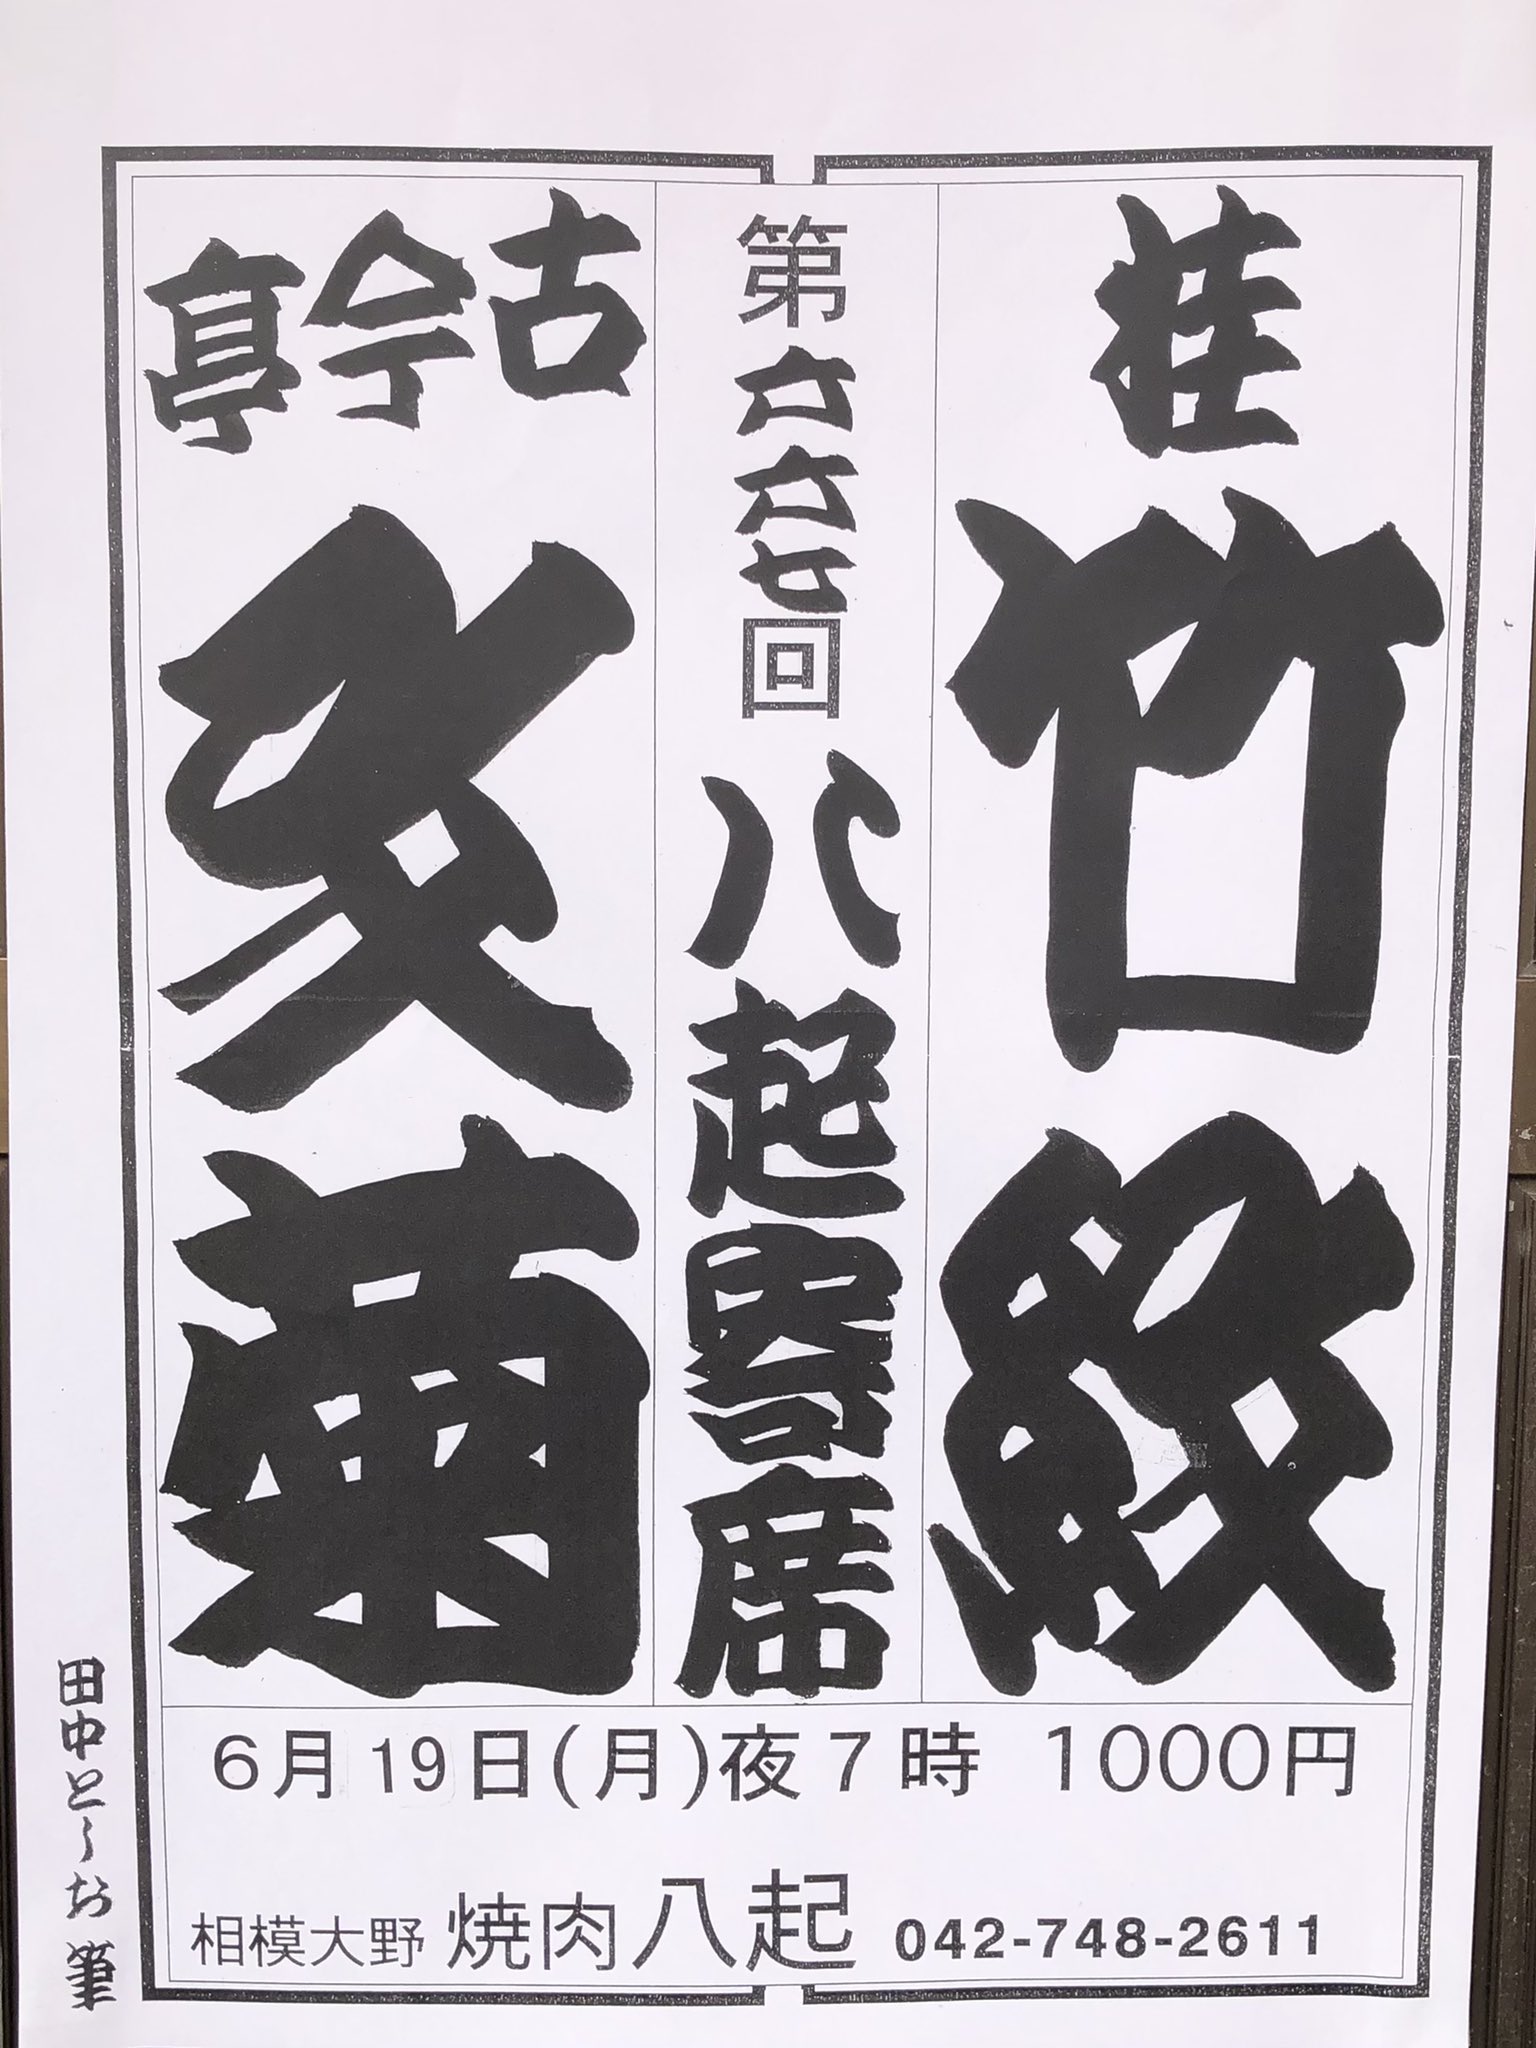 桂 竹紋
第六六七回 八起寄席
古今亭 文菊
6月19日(月)夜7時 1000円
相模大野 焼肉八起 042-748-2611
田中とーお 筆